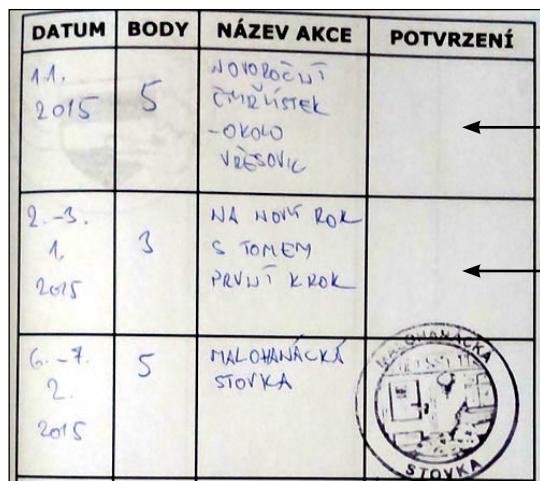 DATUM BODY NÁZEV AKCE POTVRZENÍ
1.1.
2015
5
NOVOROČNÍ
ČTYŘLÍSTEK
-OKOLO
VŘESOVIC
2.-3.
1.
2015
3
NA NOVÝ ROK
S TOMEM
PRVNÍ KROK
6.-7.
2.
2015
5
MALOHANÁCKÁ
STOVKA
MALOHANÁCKÁ
STOVKA